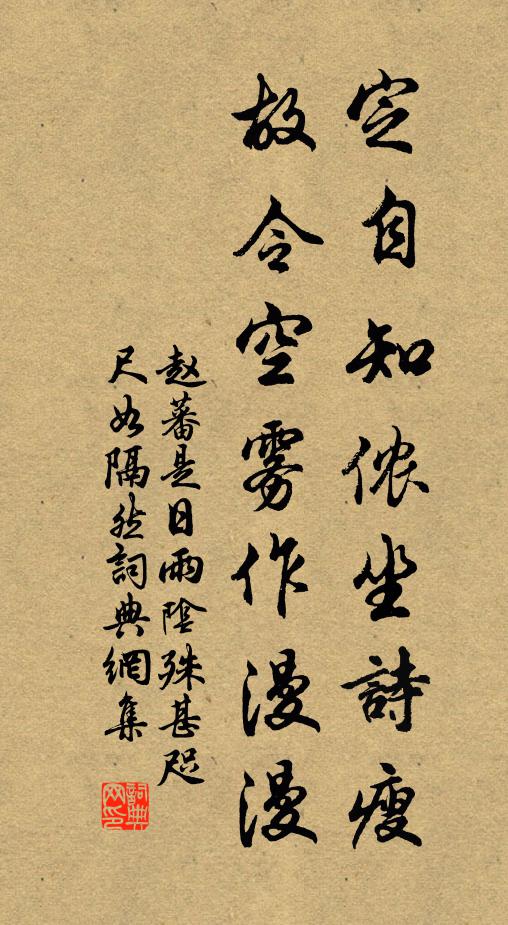 定自知侬坐詩瘦
故令空雾作漫漫
赵蕃是日雨陰殊甚咫
尺如隔然詞典網集
詞典
网印